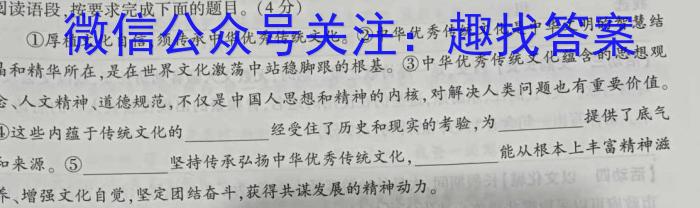 阅读语段,按要求完成下面的题目。(4分)
①厚植文化自信,须传承中华优秀传统文化。②中华优秀传统文化是中华文明的智慧结
微信公众号关注:趣找答案
晶和精华所在,是在世界文化激荡中站稳脚跟的根基。③中华优秀传统文化蕴含的思想观
念、人文精神、道德规范,不仅是中国人思想和精神的内核,对解决人类问题也有重要价值。
④这些内蕴于传统文化的________经受住了历史和现实的考验,为________提供了底气
和来源。⑤________坚持传承弘扬中华优秀传统文化,________能从根本上丰富精神滋
养、增强文化自觉,坚定团结奋斗,获得共谋发展的精神动力。